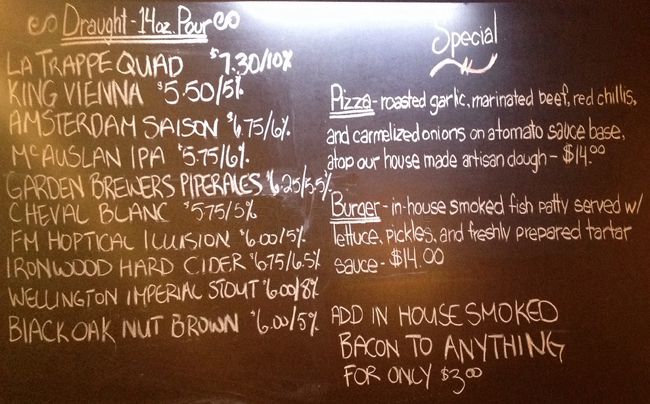 Draught - 14oz. Pour
LA TRAPPE QUAD $7.30/10%
KING VIENNA $5.50/5%
AMSTERDAM SAISON $6.75/6%
McAUSLAN IPA $5.75/6%
GARDEN BREWERS PIPERALES $6.25/5.5%
CHEVAL BLANC $5.75/5%
FM HOPTICAL ILLUSION $6.00/5%
IRONWOOD HARD CIDER $6.75/6.5%
WELLINGTON IMPERIAL STOUT $6.00/8%
BLACK OAK NUT BROWN $6.00/5%
Special
Pizza - roasted garlic, marinated beef, red chillis,
and carmelized onions on a tomato sauce base,
atop our house made artisan dough - $14.00
Burger - in-house smoked fish patty served w/
lettuce, pickles, and freshly prepared tartar
sauce - $14.00
ADD IN HOUSE SMOKED
BACON TO ANYTHING
FOR ONLY $3.00